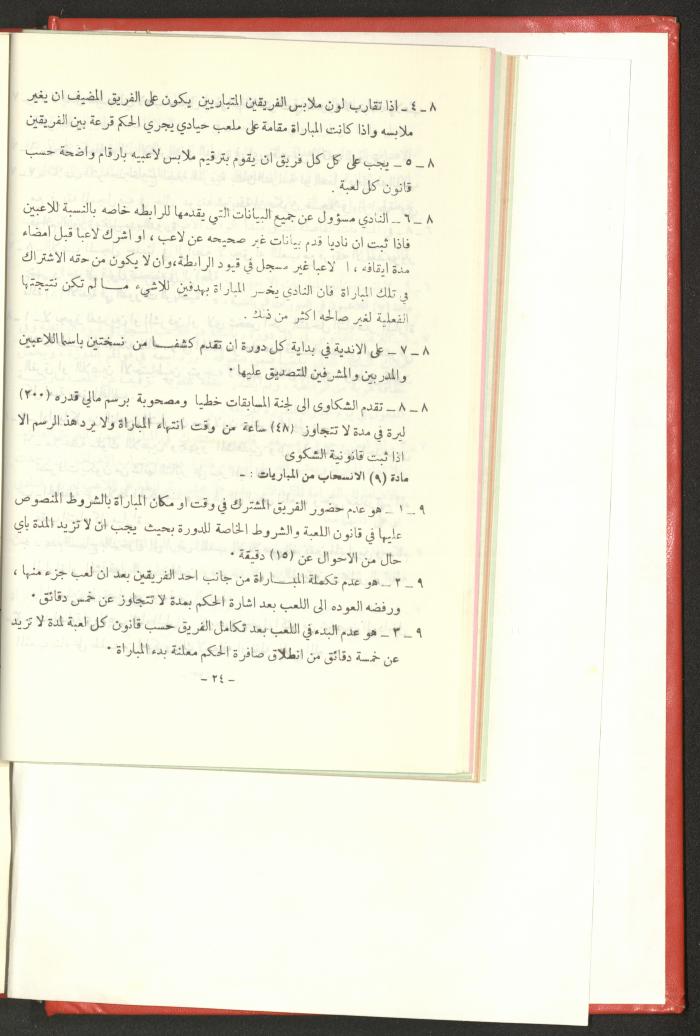 ٨ ـ ٤ ـ اذا تقارب لون ملابس الفريقين المتباريين يكون على الفريق المضيف ان يغير
ملابسه واذا كانت المباراة مقامة على ملعب حيادي يجري الحكم قرعة بين الفريقين
٨ ـ ٥ ـ يجب على كل كل فريق ان يقوم بترقيم ملابس لاعبيه بارقام واضحة حسب
قانون كل لعبة .
٨ ـ ٦ ـ النادي مسؤول عن جميع البيانات التي يقدمها للرابطه خاصه بالنسبة للاعبين
فاذا ثبت ان ناديا قدم بيانات غير صحيحه عن لاعب ، او اشرك لاعبا قبل امضاء
مدة ايقافه ، ا لاعبا غير مسجل في قيود الرابطة،وان لا يكون من حقه الاشتراك
في تلك المباراة فان النادي يخسر المباراة بهدفين للاشيء مـــا لم تكن نتيجتها
الفعلية لغير صالحه اكثر من ذلك .
٨ ـ ٧ ـ على الاندية في بداية كل دورة ان تقدم كشفـــا من نسختين باسماء اللاعبين
والمدربين والمشرفين للتصديق عليها ٠
٨ ـ ٨ ـ تقدم الشكاوى الى لجنة المسابقات خطيا ومصحوبة برسم مالي قدره (٢٠٠)
ليرة في مدة لا تتجاوز (٤٨) ساعة من وقت انتهاء المباراة ولا يرد هذ الرسم الا
اذا ثبت قانونية الشكوى
مادة (٩) الانسحاب من المباريات : ـ
٩ ـ ١ ـ هو عدم حضور الفريق المشترك في وقت او مكان المباراة بالشروط المنصوص
عليها في قانون اللعبة والشروط الخاصة للدورة بحيث يجب ان لا تزيد المدة باي
حال من الاحوال عن (١٥) دقيقة ٠
٩ ـ ٢ ـ هو عدم تكملة المبـــاراة من جانب احد الفريقين بعد ان لعب جزء منها ،
ورفضه العوده الى اللعب بعد اشارة الحكم بمدة لا تتجاوز عن خمس دقائق ٠
٩ ـ ٣ ـ هو عدم البدء في اللعب بعد تكامل الفريق حسب قانون كل لعبة لمدة لا تزيد
عن خمسة دقائق من انطلاق صافرة الحكم معلنة بدء المباراة ٠
ـ ٢٤ ـ